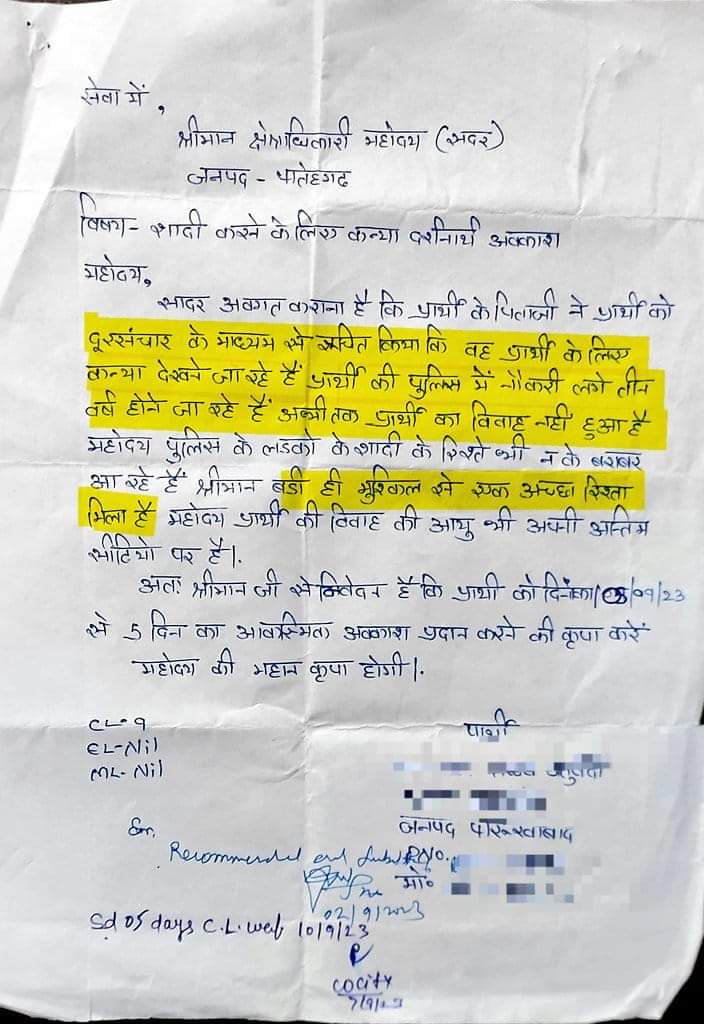 सेवा में,
श्रीमान क्षेत्राधिकारी महोदय (सदर)
जनपद - फतेहगढ
विषय - शादी करने के लिए कन्या दर्शनार्थ अवकाश
महोदय,
सादर अवगत कराना है कि प्रार्थी के पिताजी ने प्रार्थी को
दूरसंचार के माध्यम से सूचित किया कि वह प्रार्थी के लिए
कन्या देखने जा रहे हैं प्रार्थी की पुलिस में नौकरी लगे तीन
वर्ष होने जा रहे हैं अभी तक प्रार्थी का विवाह नहीं हुआ है
महोदय पुलिस के लडको के शादी के रिश्ते भी न के बराबर
आ रहे हैं श्रीमान बडी ही मुश्किल से एक अच्छा रिश्ता
मिला है महोदय प्रार्थी की विवाह की आयु भी अपनी अन्तिम
सीढियो पर है।.
अतः श्रीमान जी से निवेदन है कि प्रार्थी को दिनांक /09/23
से 5 दिन का आकस्मिक अवकाश प्रदान करने की कृपा करें
महोदय की महान कृपा होगी।.
CL-9
EL-Nil
ML-Nil
प्रार्थी
जनपद फर्रुखाबाद
Sir,
Recommended and
PNo.
मो०
02/9/2023
Sd 05 days C.L. wef 10/9/23
COCity